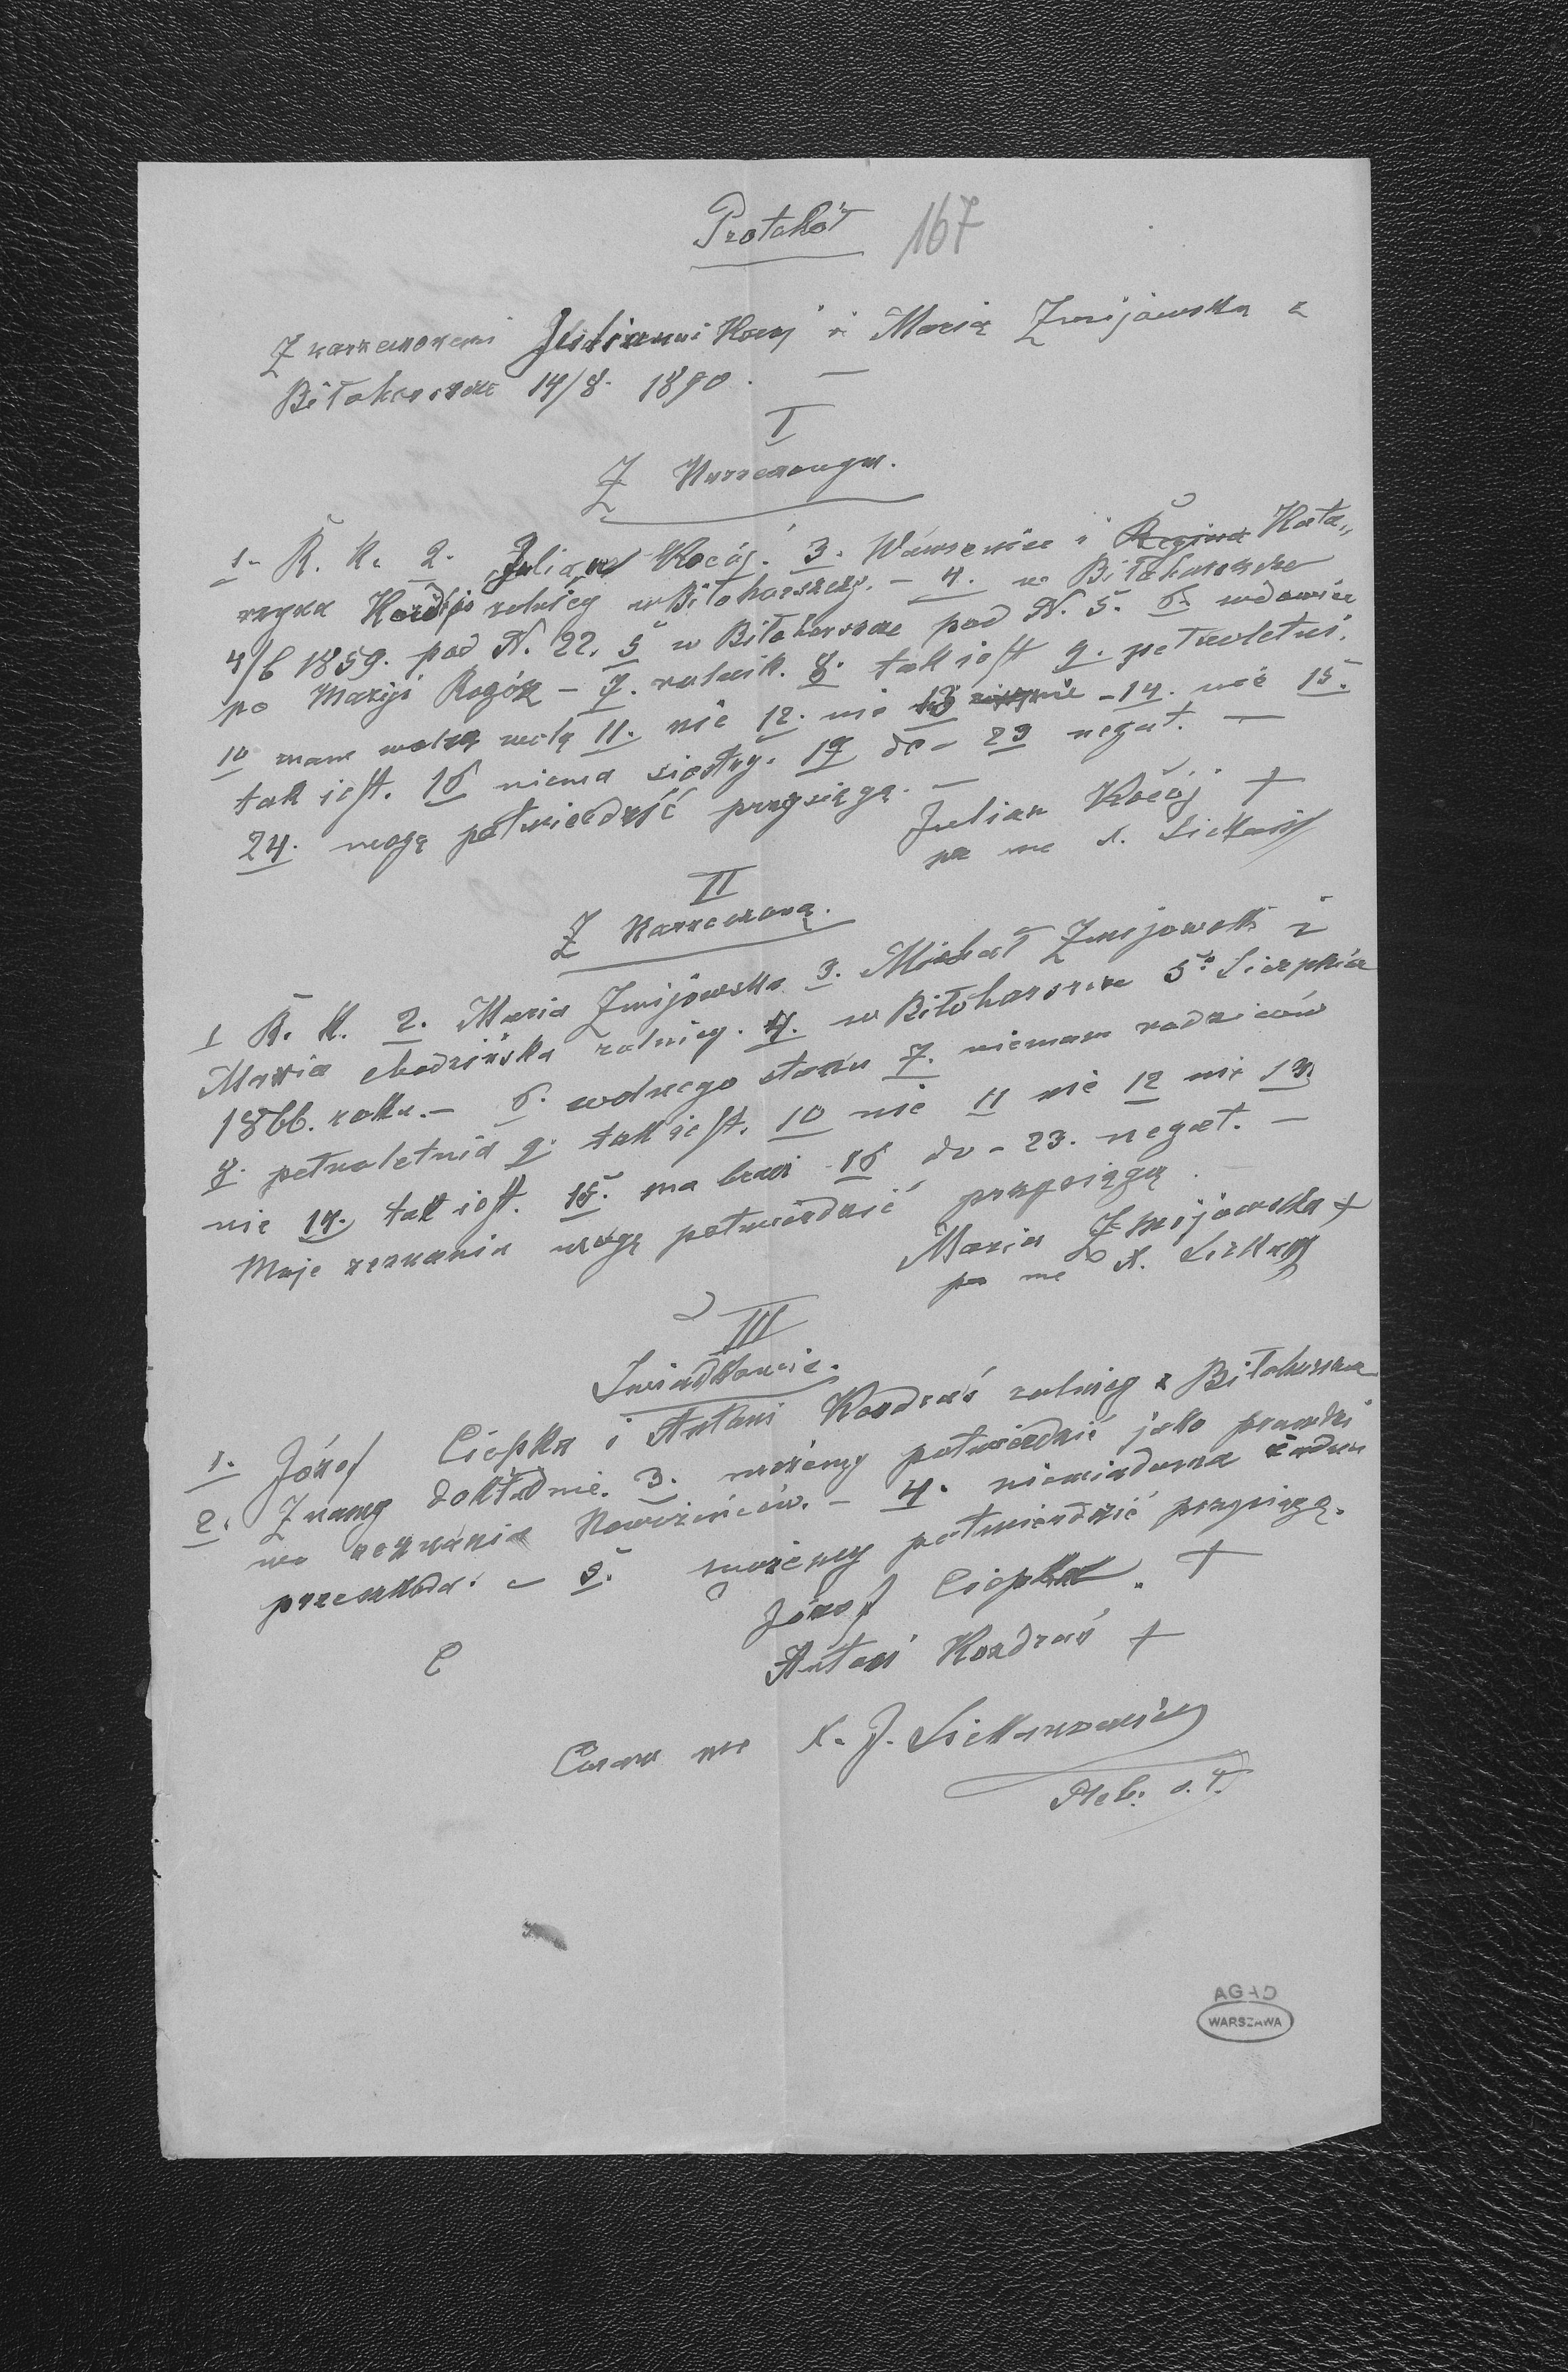 Protokół 167
Z narzeczonemi Julianni Kocój i Maria Zmijowska z
Biłohorszcze 14/8. 1890. —
I
Z Narzeczonym.
1. R. k. 2. Julian Kocój. 3. Wawrzeniec i Regina Kata„
rzyna rolnicy w Biłohorszczy. — 4. w Biłohorszcze
4/6 1859. pod N. 22. 5 w Biłohorszcze pod N. 5. 6. wdowiec
po Maryi Rogóz — 7. rolnik. 8. tak jest 9. pełnoletni.
10 mam wolną wolę 11. nie 12. nie 13 nie — 14. nie 15.
tak jest. 16 niema siostry. 17 do — 23 negat. —
24. mogę potwierdzić przysięgą. —
Julian Kocój +
po me X.
II
Z Narzeczoną.
1 R. k. 2. Maria Zmijowska 3. Michał Zmijowski i
Maria rolnicy. 4. w Biłohorszcze 5º Sierpnia
1866. roku. — 6. wolnego stanu 7. niemam rodziców
8. pełnoletnia 9. tak jest. 10 nie 11 nie 12 nie 13
nie 14. tak jest. 15. ma braci 16 do — 23. negat. —
Moje zeznania mogę potwierdzić przysięgą.
Maria Zmijowska +
po me X.
III
Swiadkowie.
1. Józef Ciepka i Antoni Kondraś rolnicy z Biłohorszcza
2. Znamy dokładnie. 3. możemy potwierdzić jako prawdzi
we zeznania Nowożeńców. — 4. niewiadoma żadna
przeszkoda. — 5. możemy potwierdzić przysięgą.
Józef Ciepka. +
Antoni Kondraś +
Coram me X. J.
Pleb. o. ł.
AGAD
WARSZAWA